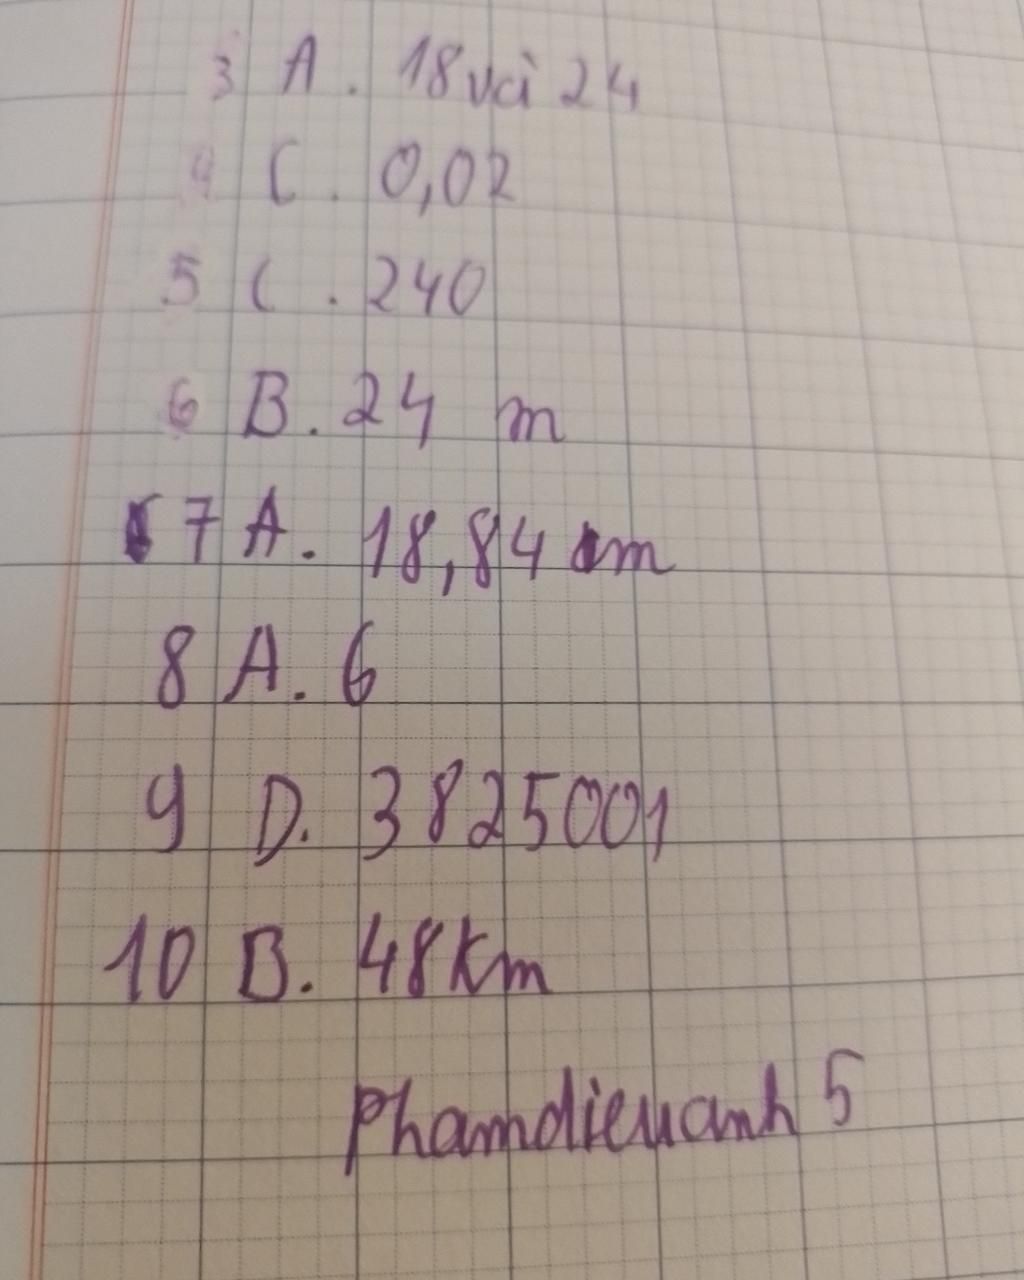 3 A. 18 và 24
4 C. 0,02
5 C. 240
6 B. 24 m
7 A. 18,84 m
8 A. 6
9 D. 3825001
10 B. 48km
Phamdieuanh 5